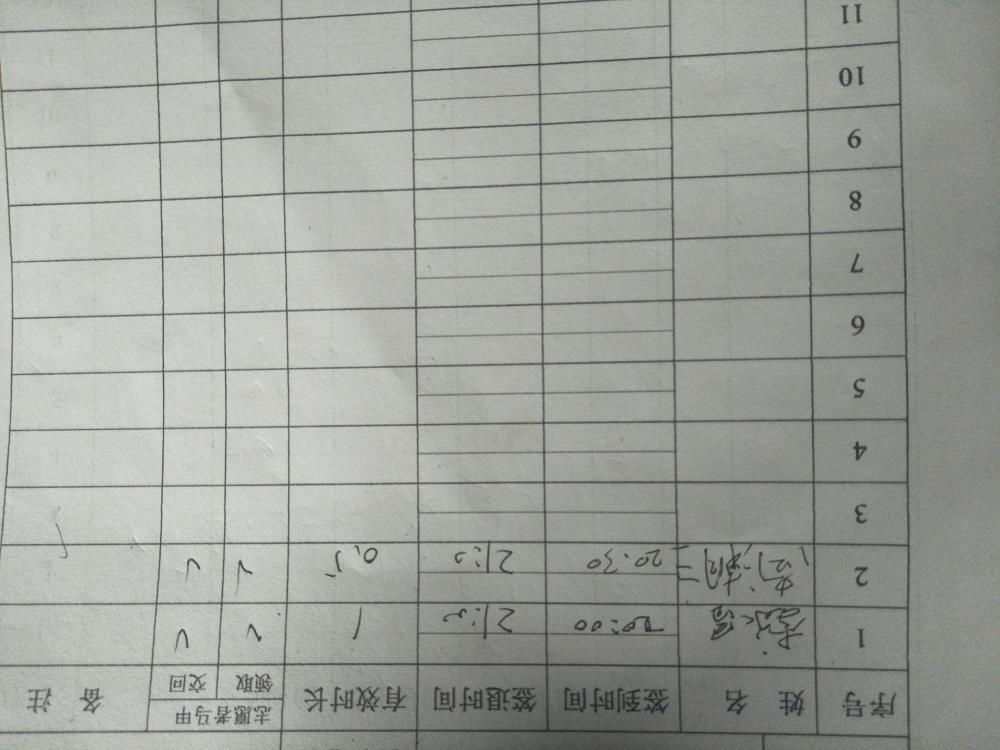 序号 姓 名 签到时间 签退时间 有效时长 志愿者马甲 备 注
领取 交回
1 20:00 21:00 1 √ √
2 20:30 21:00 0.5 √ √
3
4
5
6
7
8
9
10
11